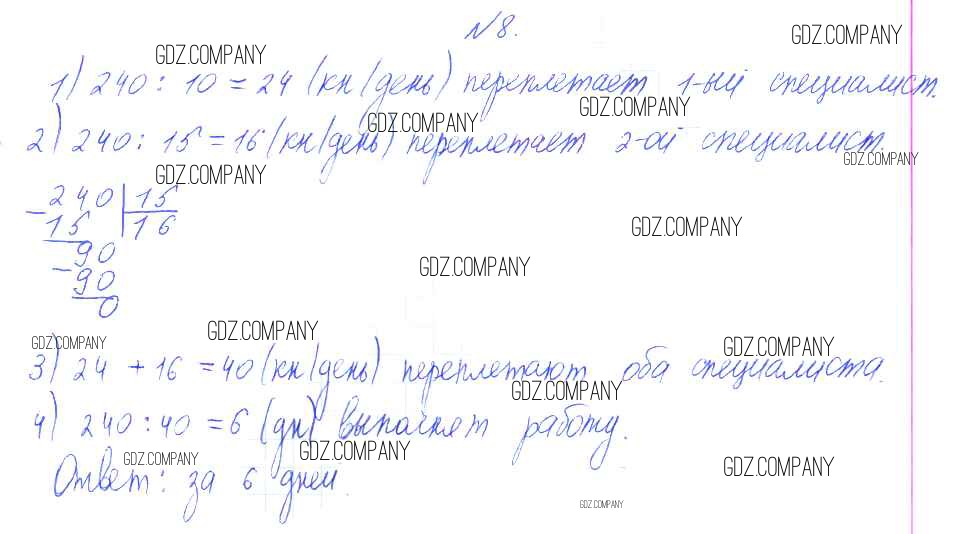 №8.
GDZ.COMPANY
GDZ.COMPANY
1) 240 : 10 = 24 (кн/день) переплетает 1-ый специалист.
GDZ.COMPANY
GDZ.COMPANY
2) 240 : 15 = 16 (кн/день) переплетает 2-ой специалист.
GDZ.COMPANY
GDZ.COMPANY
240 | 15
- 15 | 16
GDZ.COMPANY
90
- 90
GDZ.COMPANY
0
GDZ.COMPANY
GDZ.COMPANY
GDZ.COMPANY
3) 24 + 16 = 40 (кн/день) переплетают оба специалиста.
GDZ.COMPANY
4) 240 : 40 = 6 (дн) выполнят работу.
GDZ.COMPANY
GDZ.COMPANY
GDZ.COMPANY
Ответ: за 6 дней.
GDZ.COMPANY